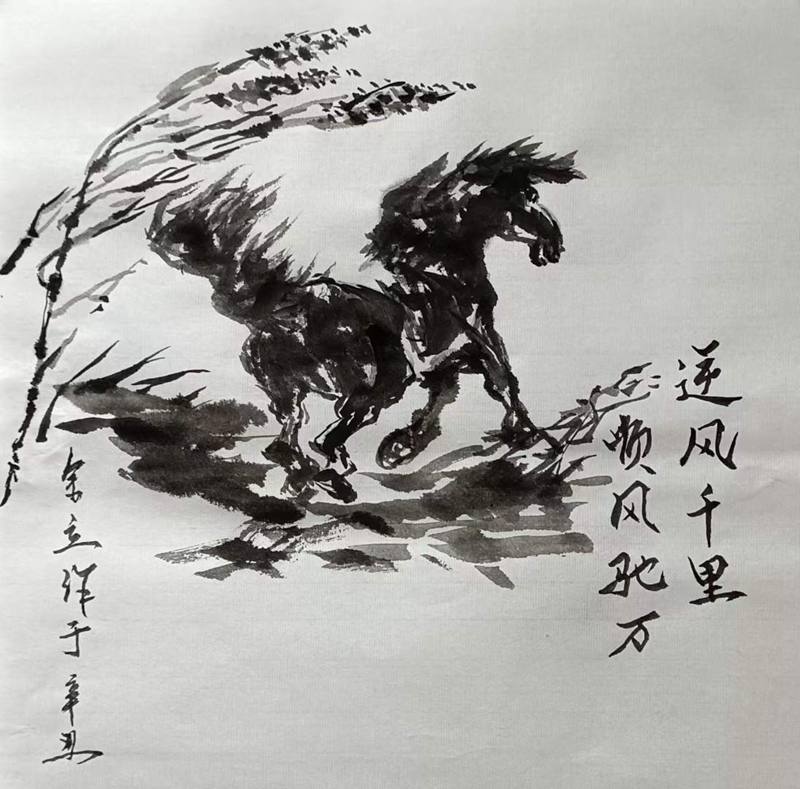 逆风千里
顺风驰万
立作于辛丑